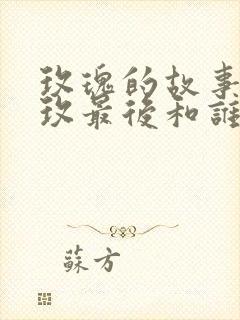 玫瑰的故事
玫最後和誰
蘇方